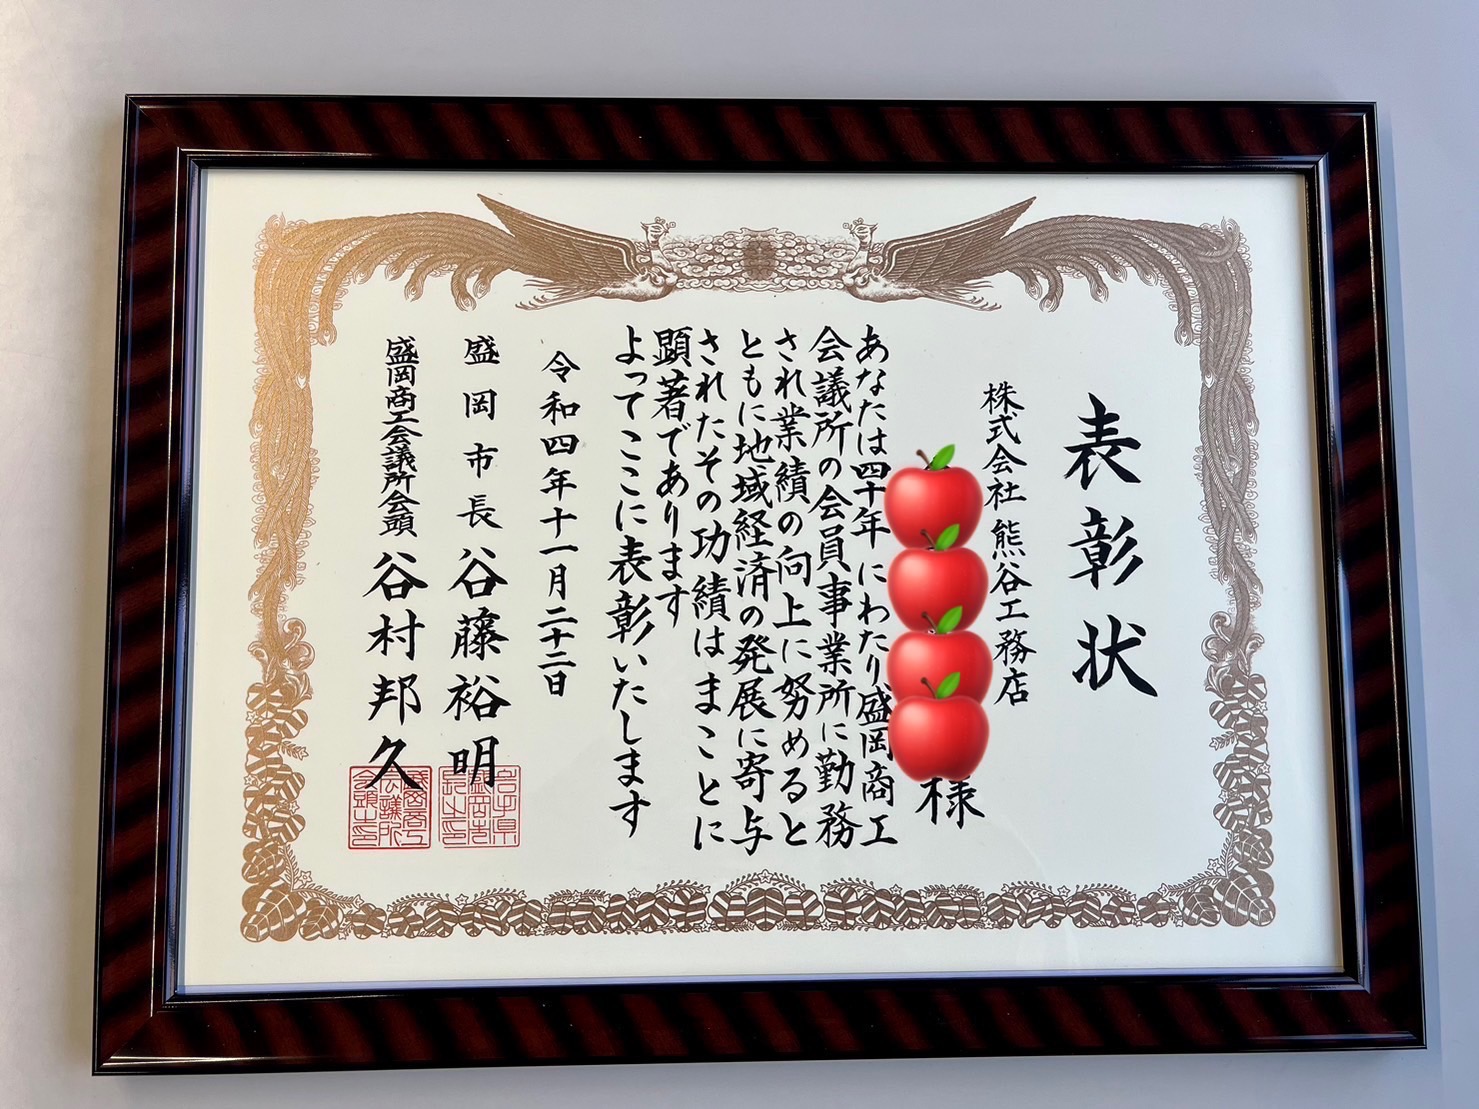 表彰状
株式会社 熊谷工務店
様
あなたは四十年にわたり盛岡商工
会議所の会員事業所に勤務
され業績の向上に努めると
ともに地域経済の発展に寄与
されたその功績はまことに
顕著であります
よってここに表彰いたします
令和四年十一月二十二日
盛岡市長 谷藤裕明
盛岡商工会議所会頭 谷村邦久
岩手県
盛岡市
長之印
盛岡商工
会議所
会頭之印